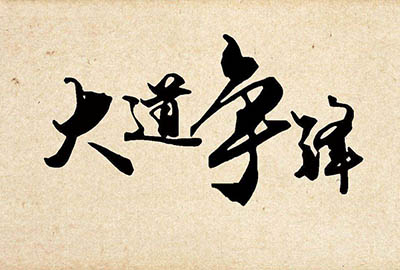 大道争锋